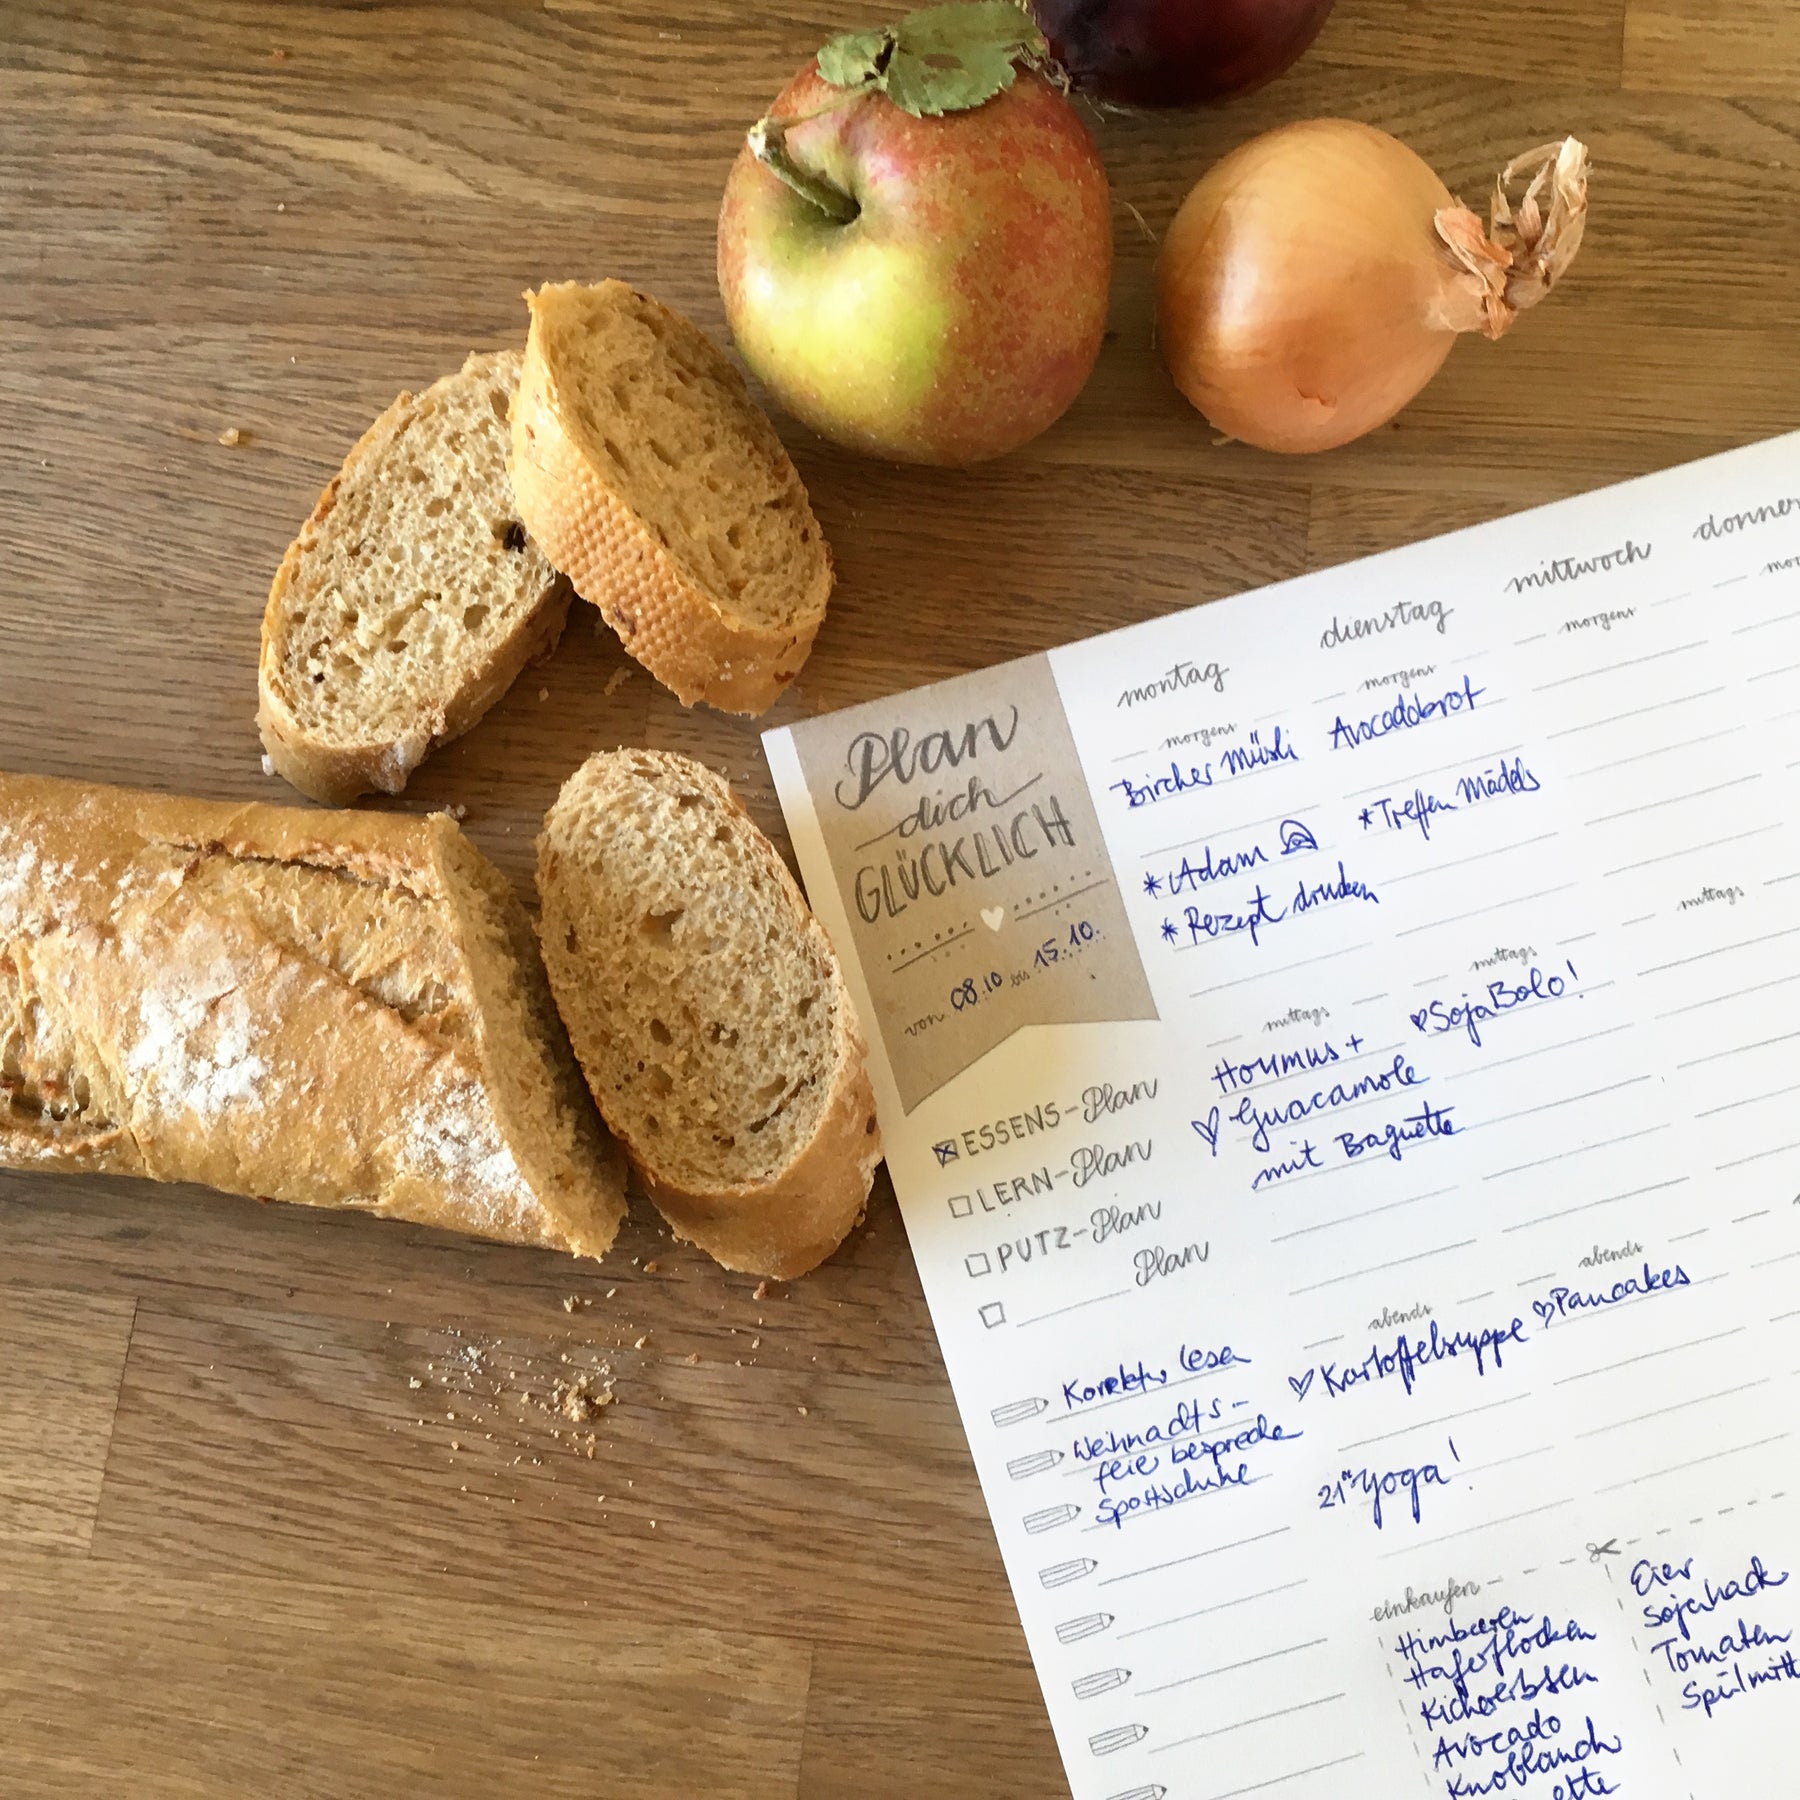 Plan
dich
GLÜCKLICH
von 08.10 bis 15.10.
☒ ESSENS-Plan
☐ LERN-Plan
☐ PUTZ-Plan
☐ Plan
Korrektur lesen
Weihnachts-
feier besprechen
Sportschuhe
montag
morgens
Bircher Müsli
*Adam
*Rezept drucken
mittags
Houmus +
♡ Guacamole
mit Baguette
abends
♡ Kartoffelsuppe
21ʰ Yoga!
dienstag
morgens
Avocadobrot
*Treffen Mädels
mittags
♥ SojaBolo!
abends
♡ Pancakes
mittwoch
morgens
mittags
donner
mor
einkaufen
Himbeeren
Haferflocken
Kichererbsen
Avocado
Knoblauch
ette
Eier
Sojahack
Tomaten
Spülmitt